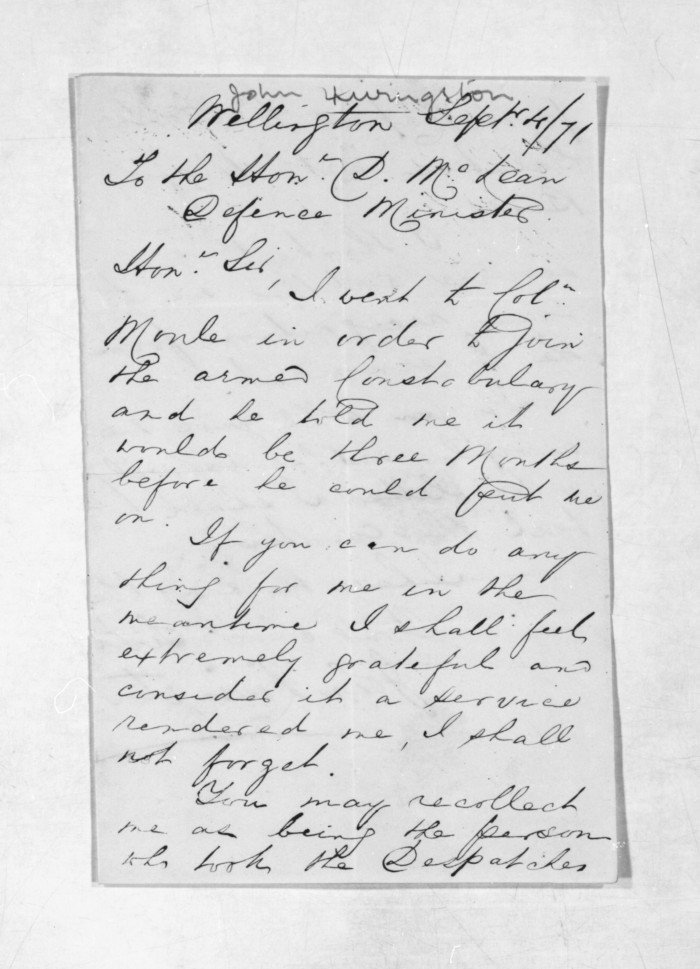 John Livingston
Wellington Septr. 4/71
To the Honr. D. McLean
Defence Minister.
Honr. Sir,
I went to Coln.
Moule in order to join
the armed Constabulary
and he told me it
would be three Months
before he could put me
on.
If you can do any
thing for me in the
meantime I shall feel
extremely grateful and
consider it a service
rendered me, I shall
not forget.
You may recollect
me as being the person
who took the Despatches